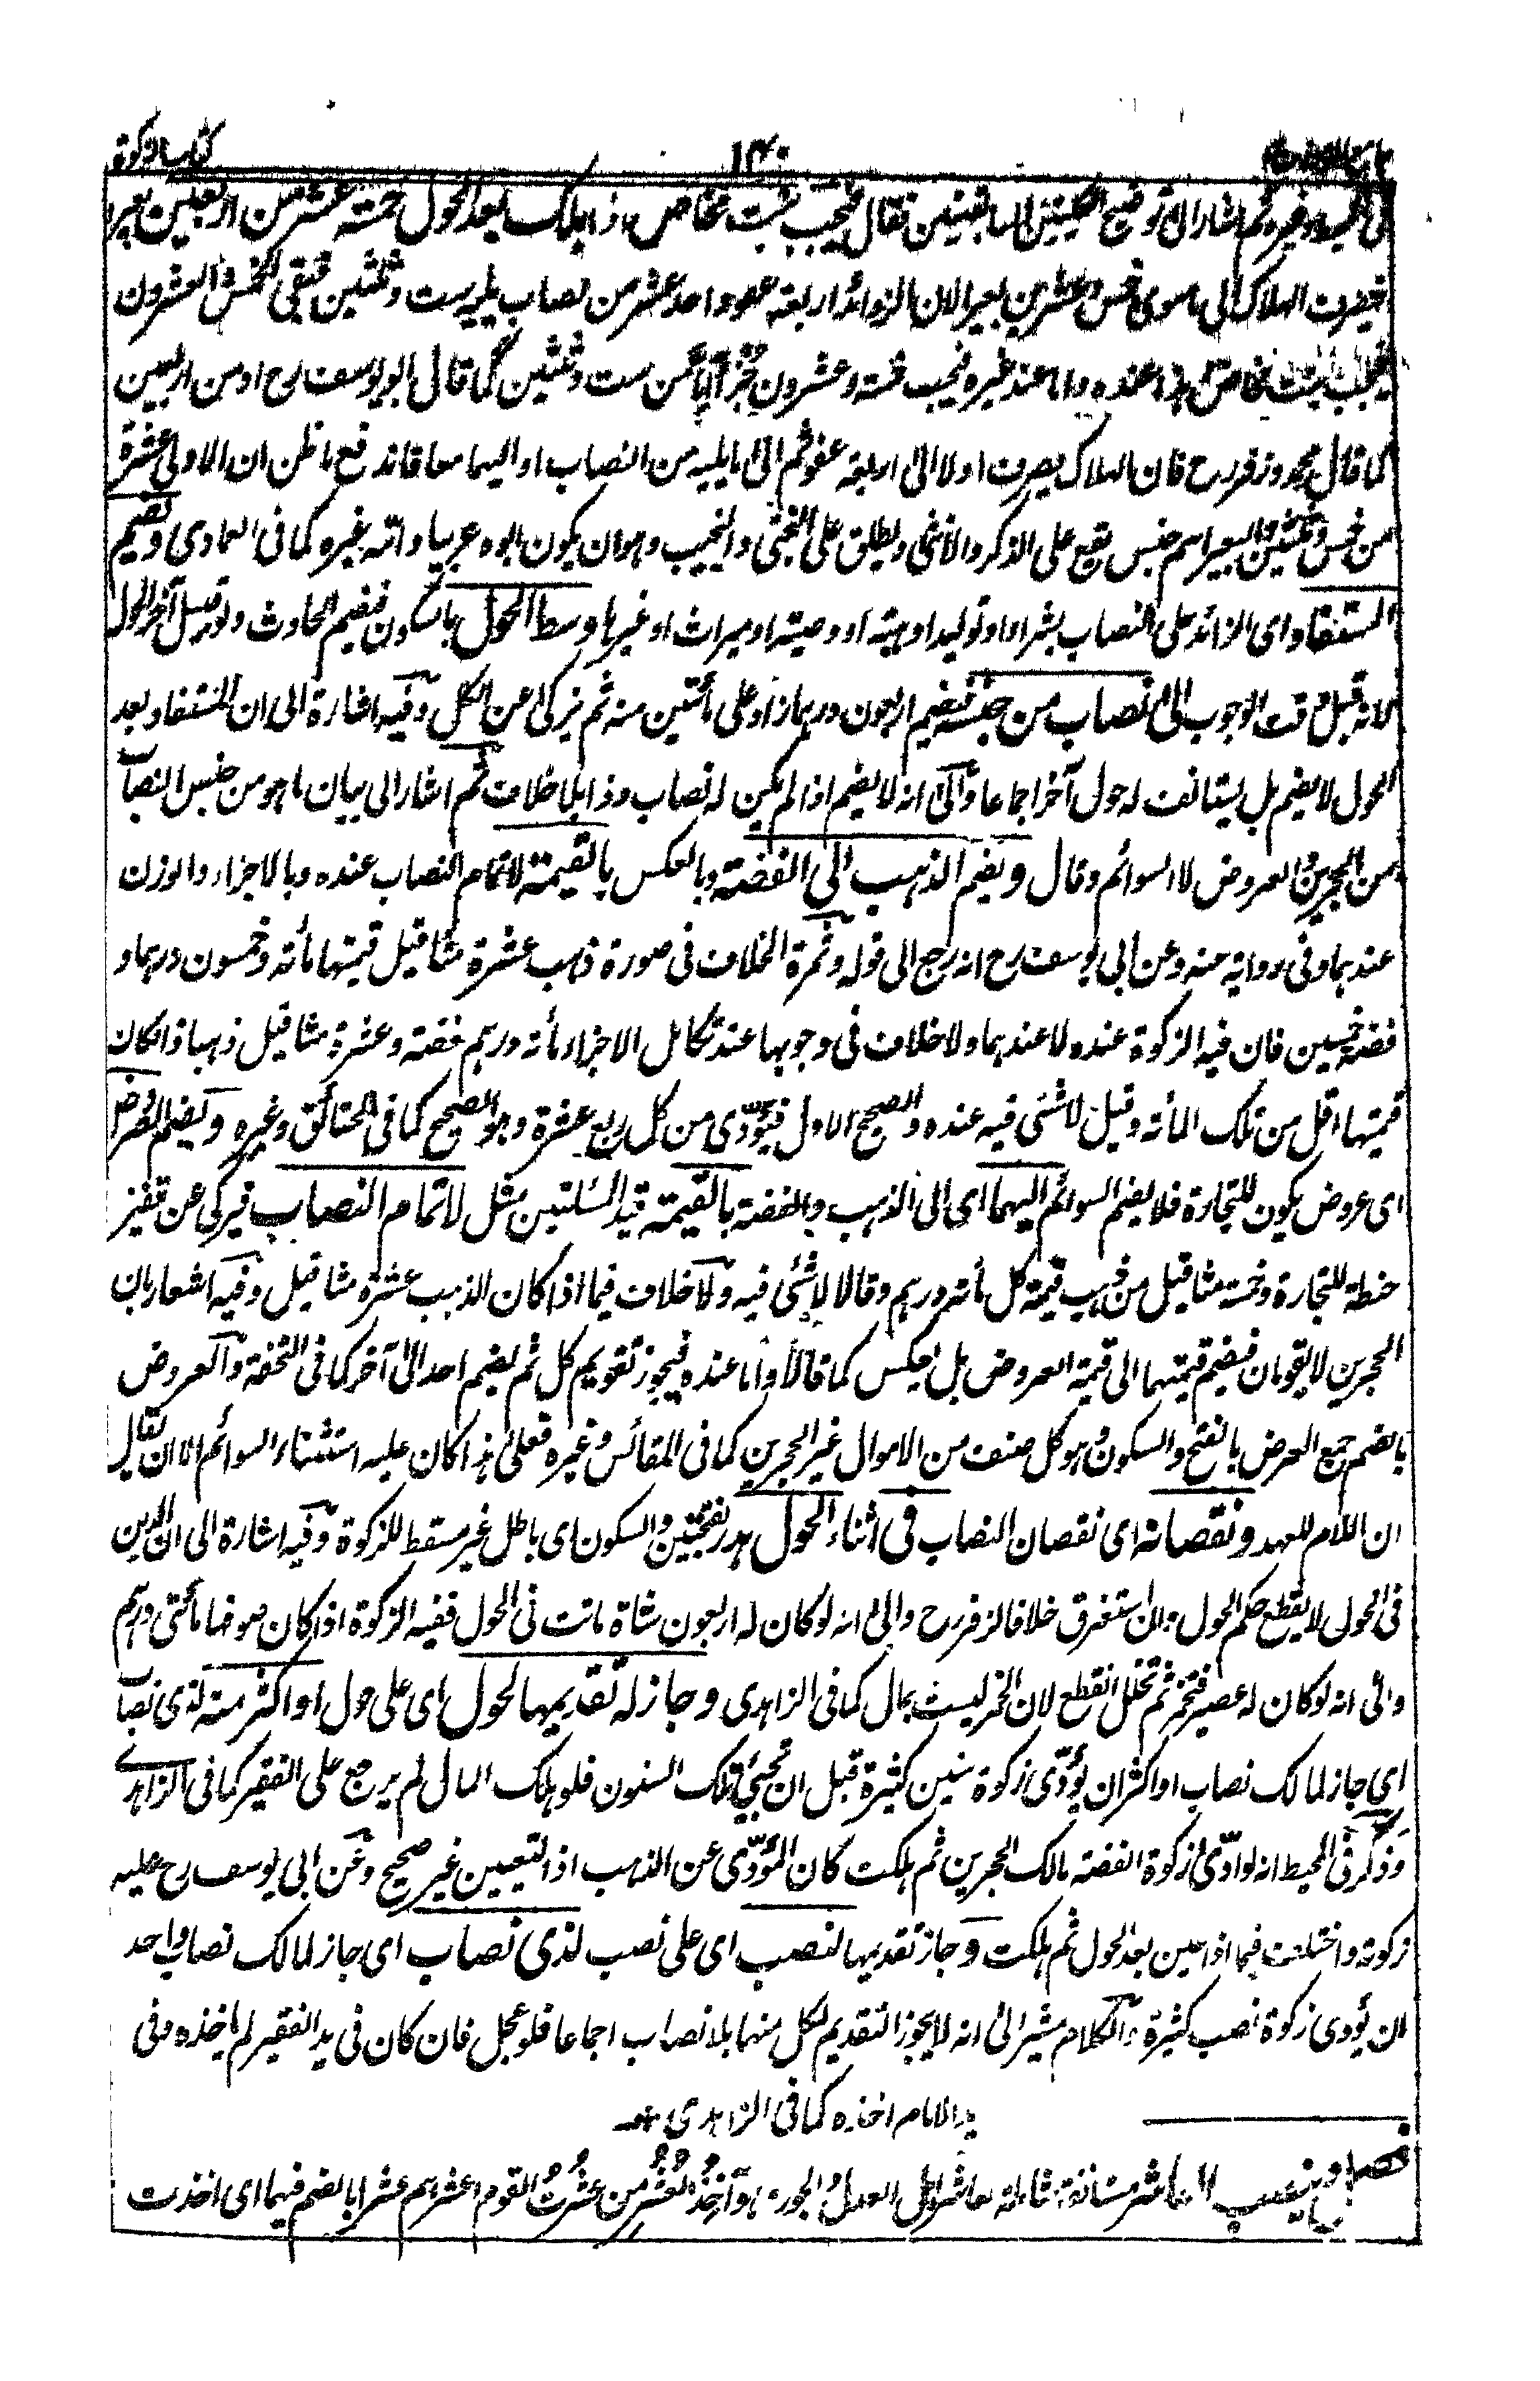 كتاب الزكوة
١٤٠
الى المحيط وغيره ثم اشار الى توضيح الحكمين السابقين فقال فيجب بنت مخاض اذا هلك بعد الحول خمسة عشر من اربعين بعيرا
فيصرف الهلاك الى ما سوى خمس وعشرين بعيرا لان الزوائد اربعة عفو واحد عشر من نصاب يليه ست وثلثين فبقى الخمس والعشرون
فيجب بنت مخاض هذا عنده واما عند غيره فيجب خمسة وعشرون جزأ اما من ست وثلثين كما قال ابو يوسف رح او من اربعين
كما قال محمد وزفر رح فان الهلاك يصرف اولا الى اربعة عفو ثم الى ما يليه من النصاب او اليهما معا فاندفع ما ظن ان الاولى عشرة
من خمس وثلثين والبعير اسم جنس يقع على الذكر والانثى ويطلق على البختى والنجيب وهو ان يكون ابوه عربيا وامه غيره كما فى العمادى ويضم
المستفاد اى الزائد على النصاب بشراء او توليد او هبة او وصية او ميراث او غيرها وسط الحول بالسكون فيضم الحادث ولو قبيل آخر الحول
لانه قبل وقت الوجوب الى نصاب من جنسه فيضم اربعون درهما زاد على مأتين منه ثم يزكى عن الكل وفيه اشارة الى ان المستفاد بعد
الحول لا يضم بل يستانف له حول آخر اجماعا والى انه لا يضم اذا لم يكن له نصاب وذا بلا خلاف ثم اشار الى بيان ما هو من جنس النصاب
من الحجرين والعروض لا السوائم وقال ويضم الذهب الى الفضة وبالعكس بالقيمة لاتمام النصاب عنده وبالاجزاء والوزن
عندهما وفى رواية منه وعن ابى يوسف رح انه رجع الى قوله وثمرة الخلاف فى صورة ذهب عشرة مثاقيل قيمتها مأته وخمسون درهما و
فضة خمسين فان فيه الزكوة عنده لا عندهما ولا خلاف فى وجوبها عند تكامل الاجزاء مأته درهم فضة وعشرة مثاقيل ذهبا اذا كان
قيمتها اقل من تلك المأته وقيل لا شئ فيه عنده والصحيح الاول فيؤدى من كل ربع عشرة وهو الصحيح كما فى الحقائق وغيره ويضم العروض
اى عروض يكون للتجارة فلا يضم السوائم اليهما اى الى الذهب والفضة بالقيمة قيد المسئلتين مثل لاتمام النصاب فيزكى عن قفيز
حنطة للتجارة وخمسة مثاقيل من ذهب قيمة كل مأته درهم وقالا لا شئ فيه ولا خلاف فيما اذا كان الذهب عشرة مثاقيل وفيه اشعار بان
الحجرين لا يقومان فيضم قيمتهما الى قيمة العروض بل بعكس كما قالا واما عنده فيجوز تقويم كل ثم يضم احد الى آخر كما فى التحفة والعروض
بالضم جمع العرض بالفتح والسكون وهو كل صنف من الاموال غير الحجرين كما فى المقائس وغيره فعلى هذا كان عليه استثناء السوائم الا ان يقال
ان اللام للعهد ونقصانه اى نقصان النصاب فى اثناء الحول هدر بفتحتين والسكون اى باطل غير مسقط للزكوة وفيه اشارة الى ان الدين
فى الحول لا يقطع حكم الحول وان استغرق خلافا لزفر رح والى انه لو كان له اربعون شاة ماتت فى الحول ففيه الزكوة اذا كان صوفها مأتى درهم
والى انه لو كان له عصير فتخمر ثم تخلل انقطع لان الخمر ليست بمال كما فى الزاهدى وجاز له تقديمها لحول اى على حول او اكثر منه لذى نصاب
اى جاز لمالك نصاب او اكثر ان يؤدى زكوة سنين كثيرة قبل ان تجئ تلك السنون فلو هلك المال لم يرجع على الفقير كما فى الزاهدى
وذكر فى المحيط انه لو ادى زكوة الفضة مالك الحجرين ثم هلكت كان المؤدى عن الذهب اذ التعيين غير صحيح وعن ابى يوسف رح عليه
زكوته واختلف فيما اذا عين بعد الحول ثم هلكت وجاز تقديمها لنصب اى على نصب لذى نصاب اى جاز لمالك نصاب واحد
ان يؤدى زكوة نصب كثيرة والكلام مشير الى انه لا يجوز التقديم لكل منهما بلا نصاب اجماعا فلو عجل فان كان فى يد الفقير لم ياخذه وفى
يد الامام اخذه كما فى الزاهدى
فصل وينصب العاشر مستانفة شاملة لعاشر اهل العدل والجور وآخذ العشر من عشرت القوم اعشرهم عشرا بالضم فيهما اى اخذت